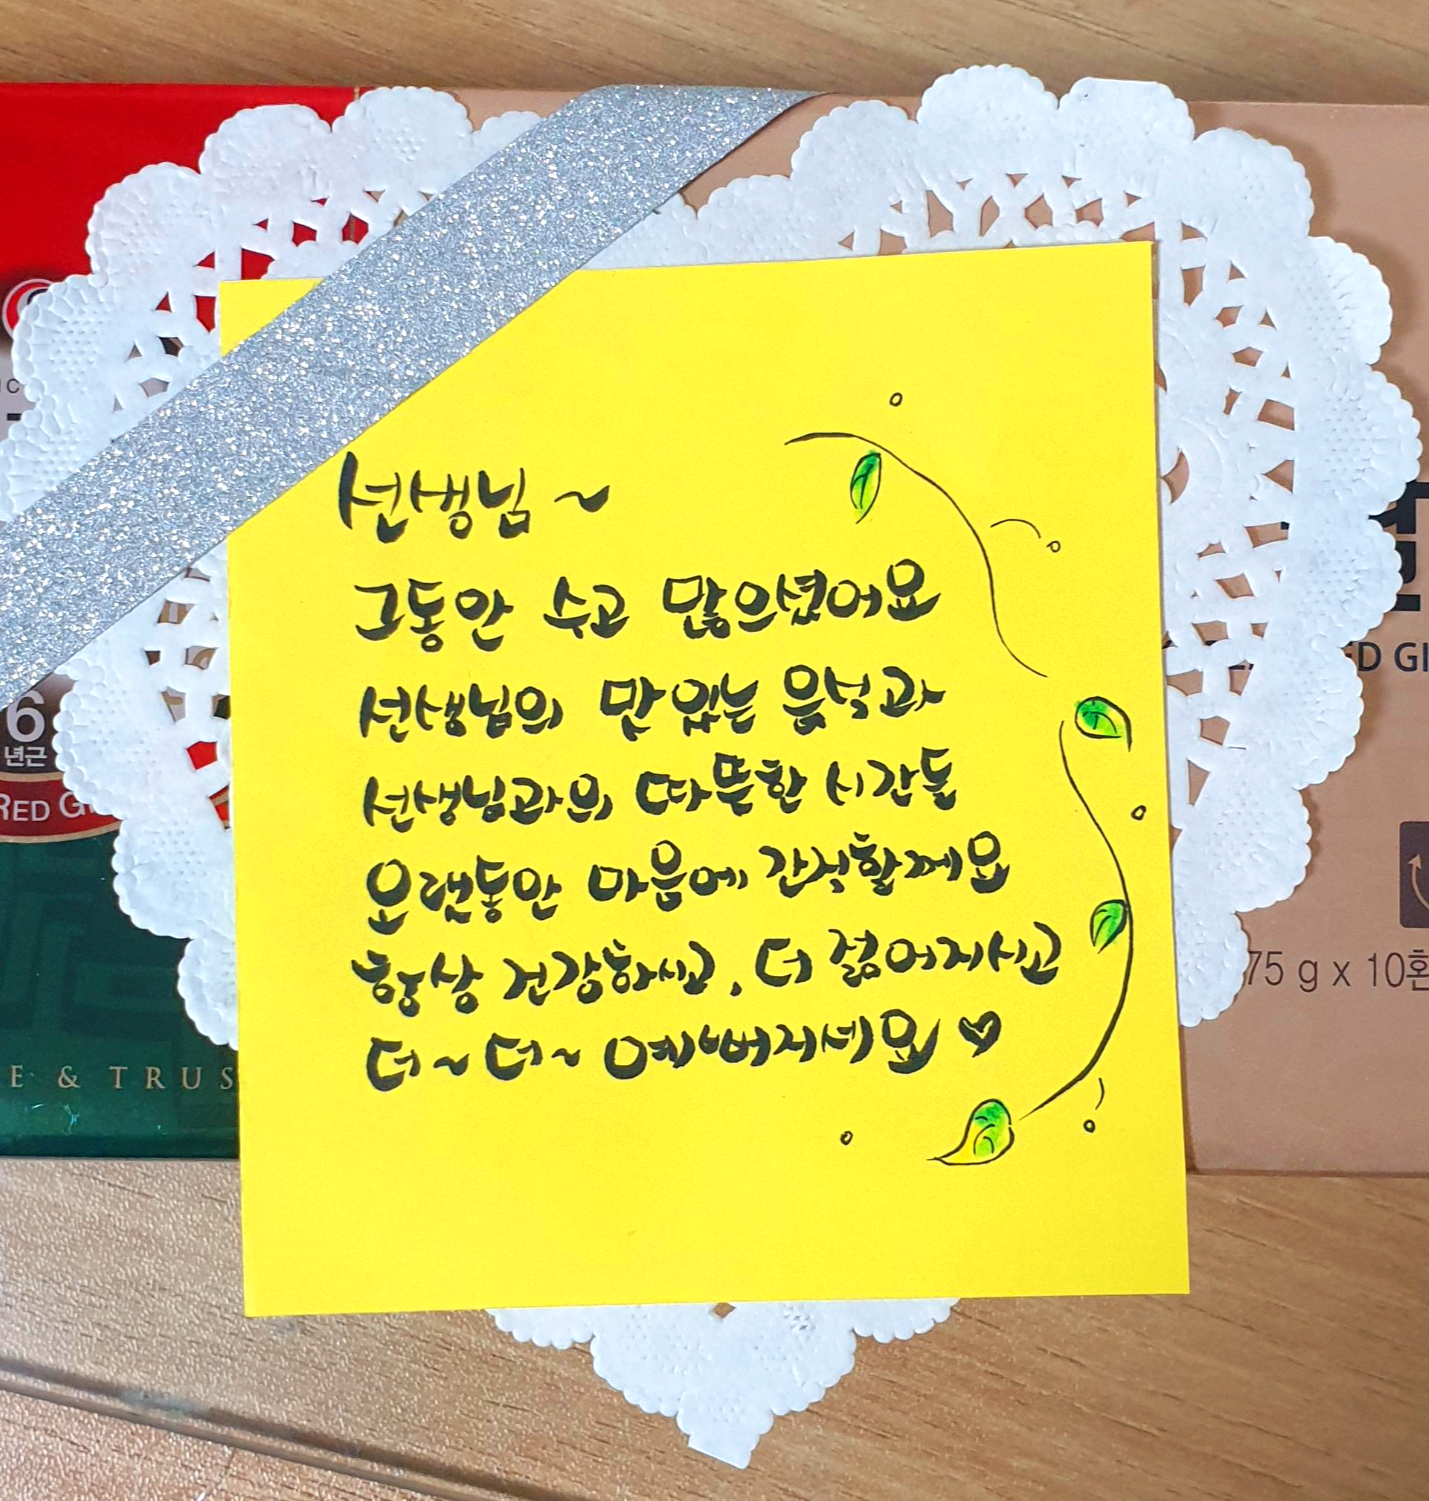 선생님~
그동안 수고 많으셨어요
선생님의 맛있는 음식과
선생님과의 따뜻한 시간들
오랫동안 마음에 간직할께요
항상 건강하시고, 더 젊어지시고
더~ 더~ 예뻐지세요♡
6
년근
RED G
E & TRUS
ED GI
75 g x 10환